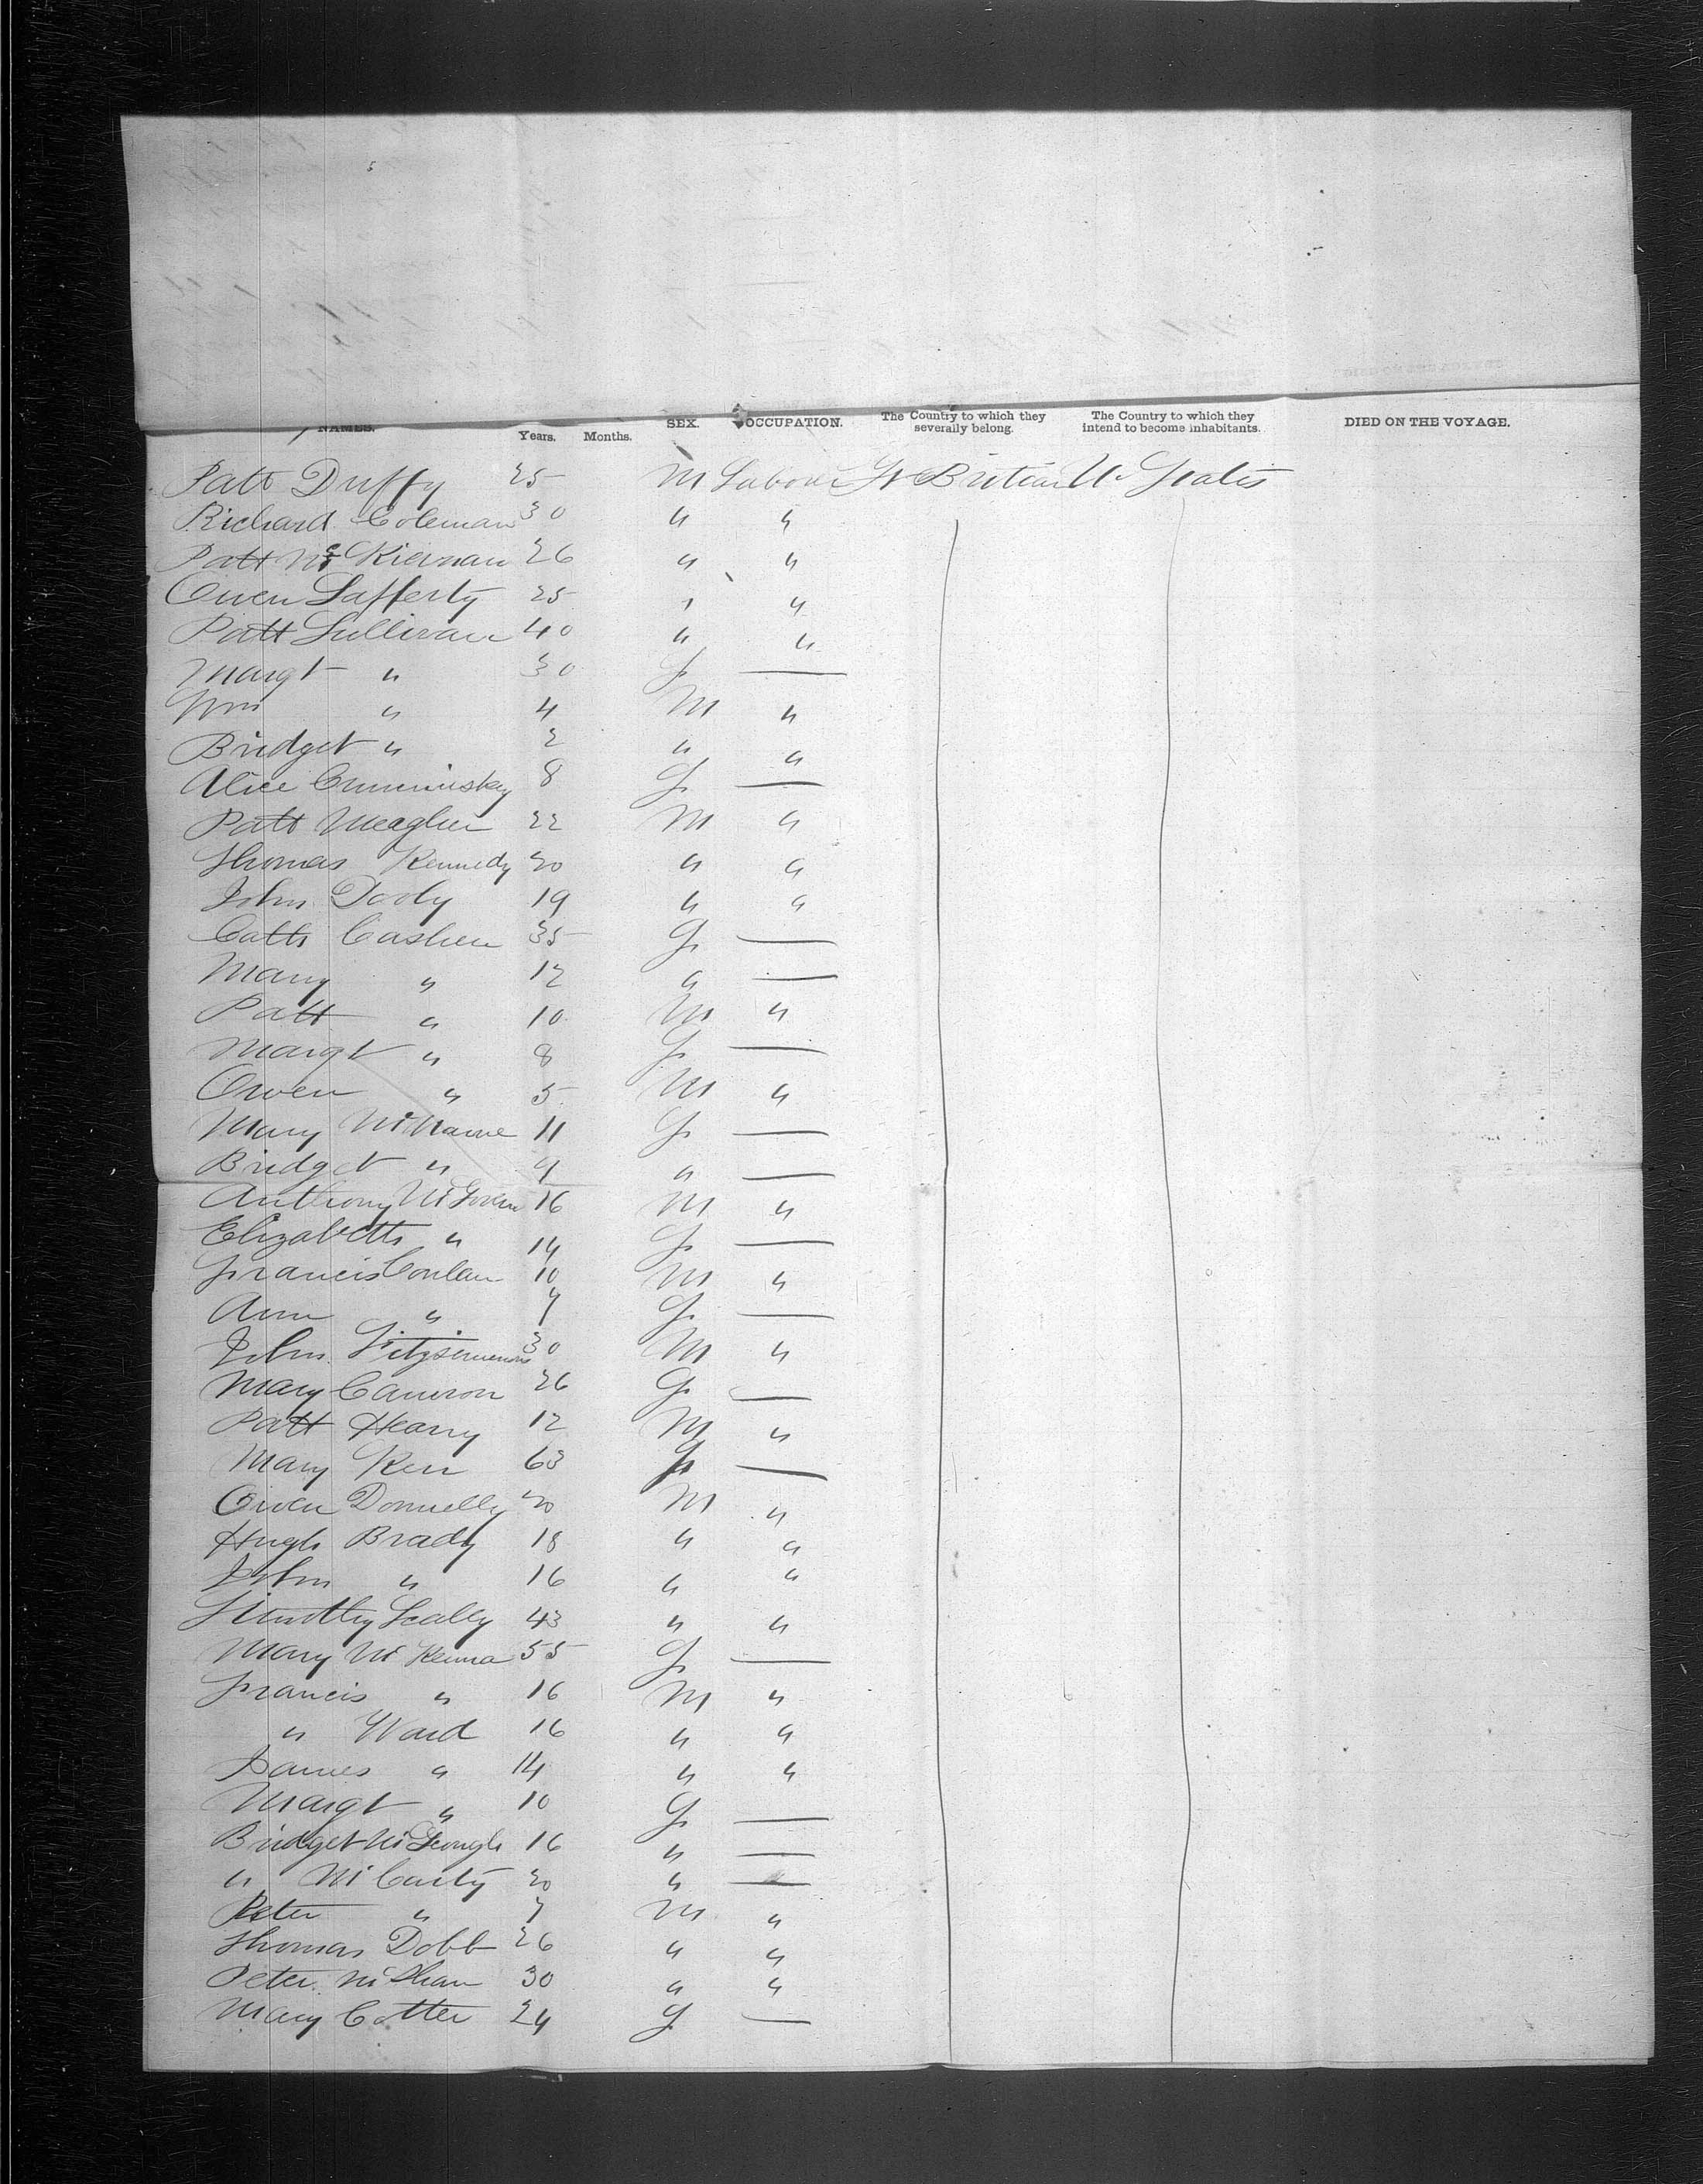 NAMES. Years. Months. SEX. OCCUPATION. The Country to which they severally belong. The Country to which they intend to become inhabitants. DIED ON THE VOYAGE.
Patt Duffy 25 M Labour Gt Britian U. States
Richard Coleman 30 " "
Patt Mc Kiernan 26 " "
Owen Lafferty 25 " "
Patt Sullivan 40 " "
Margt " 30 F —
Wm " 4 M "
Bridget " 2 " "
Alice 8 F —
Patt Meagher 22 M "
Thomas Kennedy 20 " "
John Dooly 19 " "
Cath Cashen 35 F —
Mary " 12 " —
Patt " 10 M "
Margt " 8 F —
Owen " 5 M "
Mary 11 F —
Bridget " 9 " —
Anthony McGovern 16 M "
Elizabeth " 14 F —
Francis Conlan 10 M "
Ann " 7 F —
John Fitzsimmons 30 M "
Mary Cameron 26 F —
Patt Heany 12 M "
Mary Kerr 63 F —
Owen Donnelly 20 M "
Hugh Brady 18 " "
John " 16 " "
Timothy Scally 43 " "
Mary Mc Kenna 55 F —
Francis " 16 M "
" Ward 16 " "
James " 14 " "
Margt " 10 F —
Bridget McGeough 16 " —
" McCarty 20 " —
Peter " 7 M "
Thomas Dobb 26 " "
Peter 30 " "
Mary Cotter 24 F —